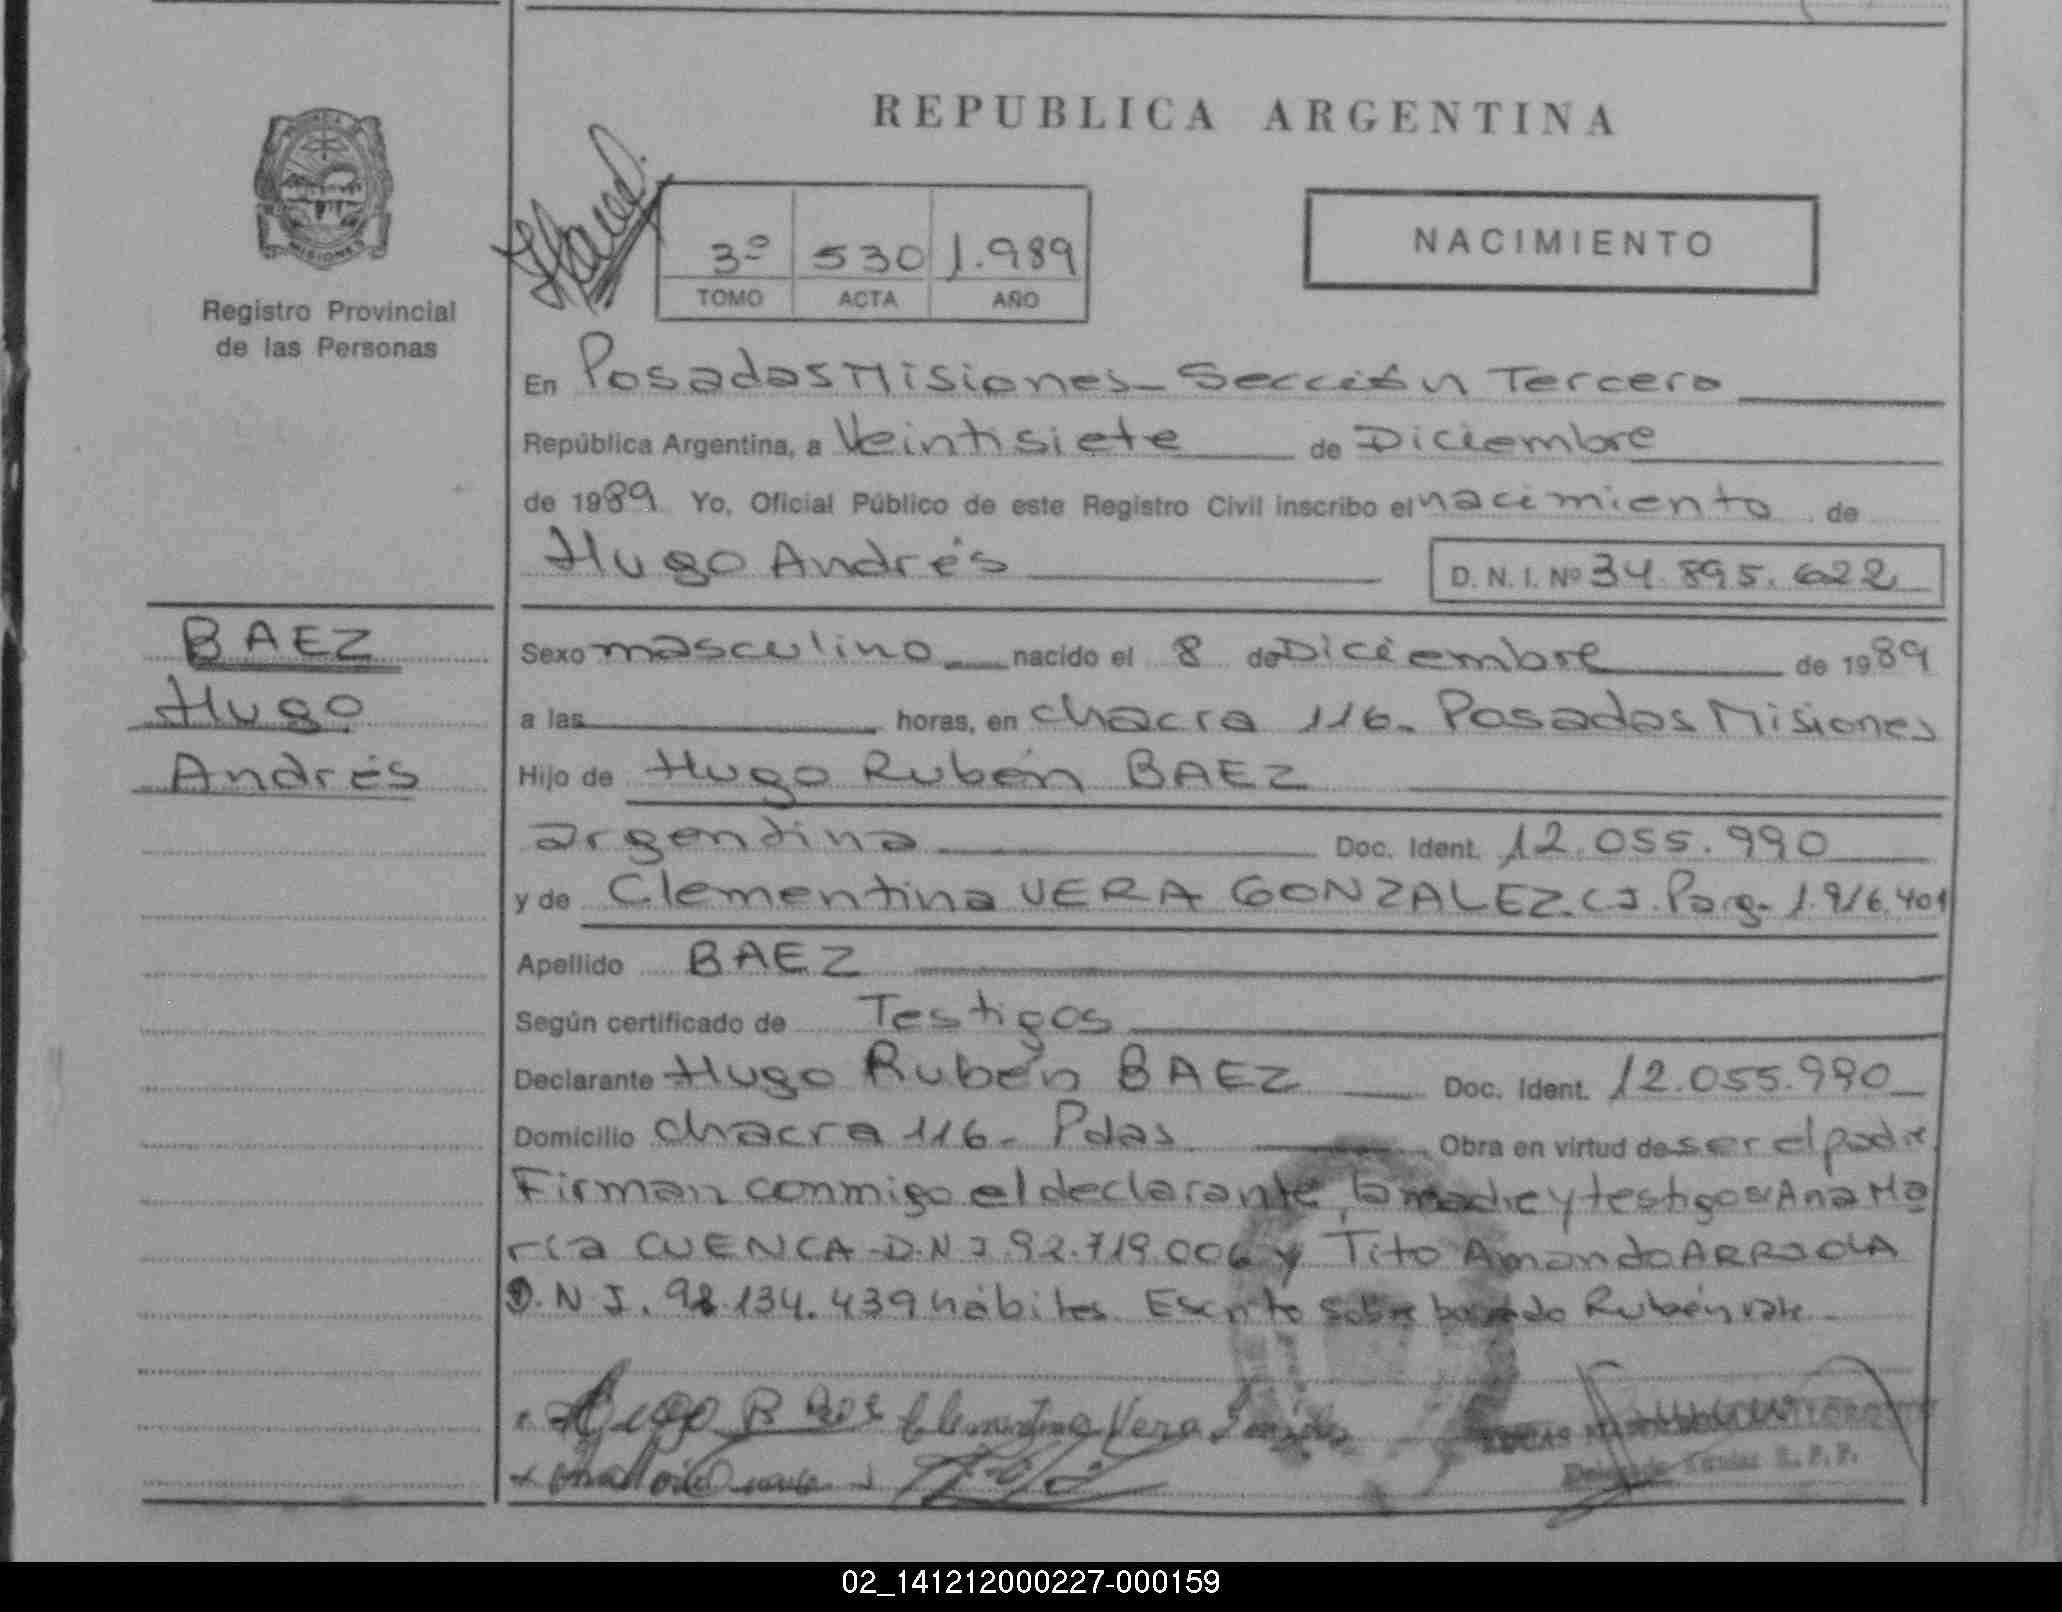 REPUBLICA ARGENTINA
PROVINCIA DE
MISIONES
Registro Provincial
de las Personas
3º 530 1.989
TOMO ACTA AÑO
NACIMIENTO
En Posadas Misiones - Sección Tercera
República Argentina, a Veintisiete de Diciembre
de 1989 Yo, Oficial Público de este Registro Civil inscribo el nacimiento de
Hugo Andrés D. N. I. Nº 34.895.622
BAEZ
Hugo
Andrés
Sexo masculino nacido el 8 de Diciembre de 1989
a las horas, en chacra 116. Posadas Misiones
Hijo de Hugo Rubén BAEZ
argentina Doc. Ident. 12.055.990
y de Clementina VERA GONZALEZ. C.I. Parg. 1.916.401
Apellido BAEZ
Según certificado de Testigos
Declarante Hugo Rubén BAEZ Doc. Ident. 12.055.990
Domicilio chacra 116. Pdas Obra en virtud de ser el padre
Firman conmigo el declarante, la madre y testigos: Ana Ma
ría CUENCA D.N.I. 92.719.006 y Tito Amando ARRIOLA
D.N.I. 92.134.439 hábiles. Escrito sobre borrado Rubén vale
Hugo R Baez Clementina Vera
R. P. P.
02_141212000227-000159